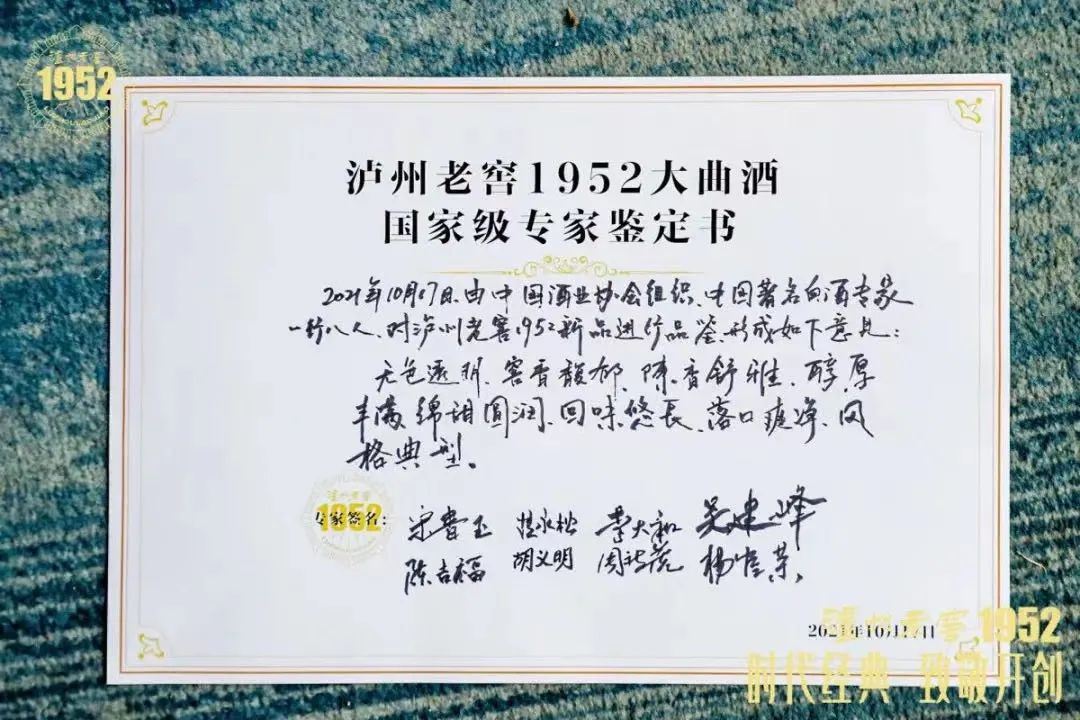 泸州老窖
1952
泸州老窖1952大曲酒
国家级专家鉴定书
2021年10月17日,由中国酒业协会组织、中国著名白酒专家
一行八人,对泸州老窖1952新品进行品鉴,形成如下意见:
无色透明、窖香馥郁、陈香舒雅、醇厚
丰满、绵甜圆润、回味悠长、落口爽净、风
格典型。
泸州老窖
1952
专家签名:
宋书玉 李大和 吴建峰
陈吉福 胡义明 杨官荣
2021年10月17日
泸州老窖1952
时代经典 致敬开创